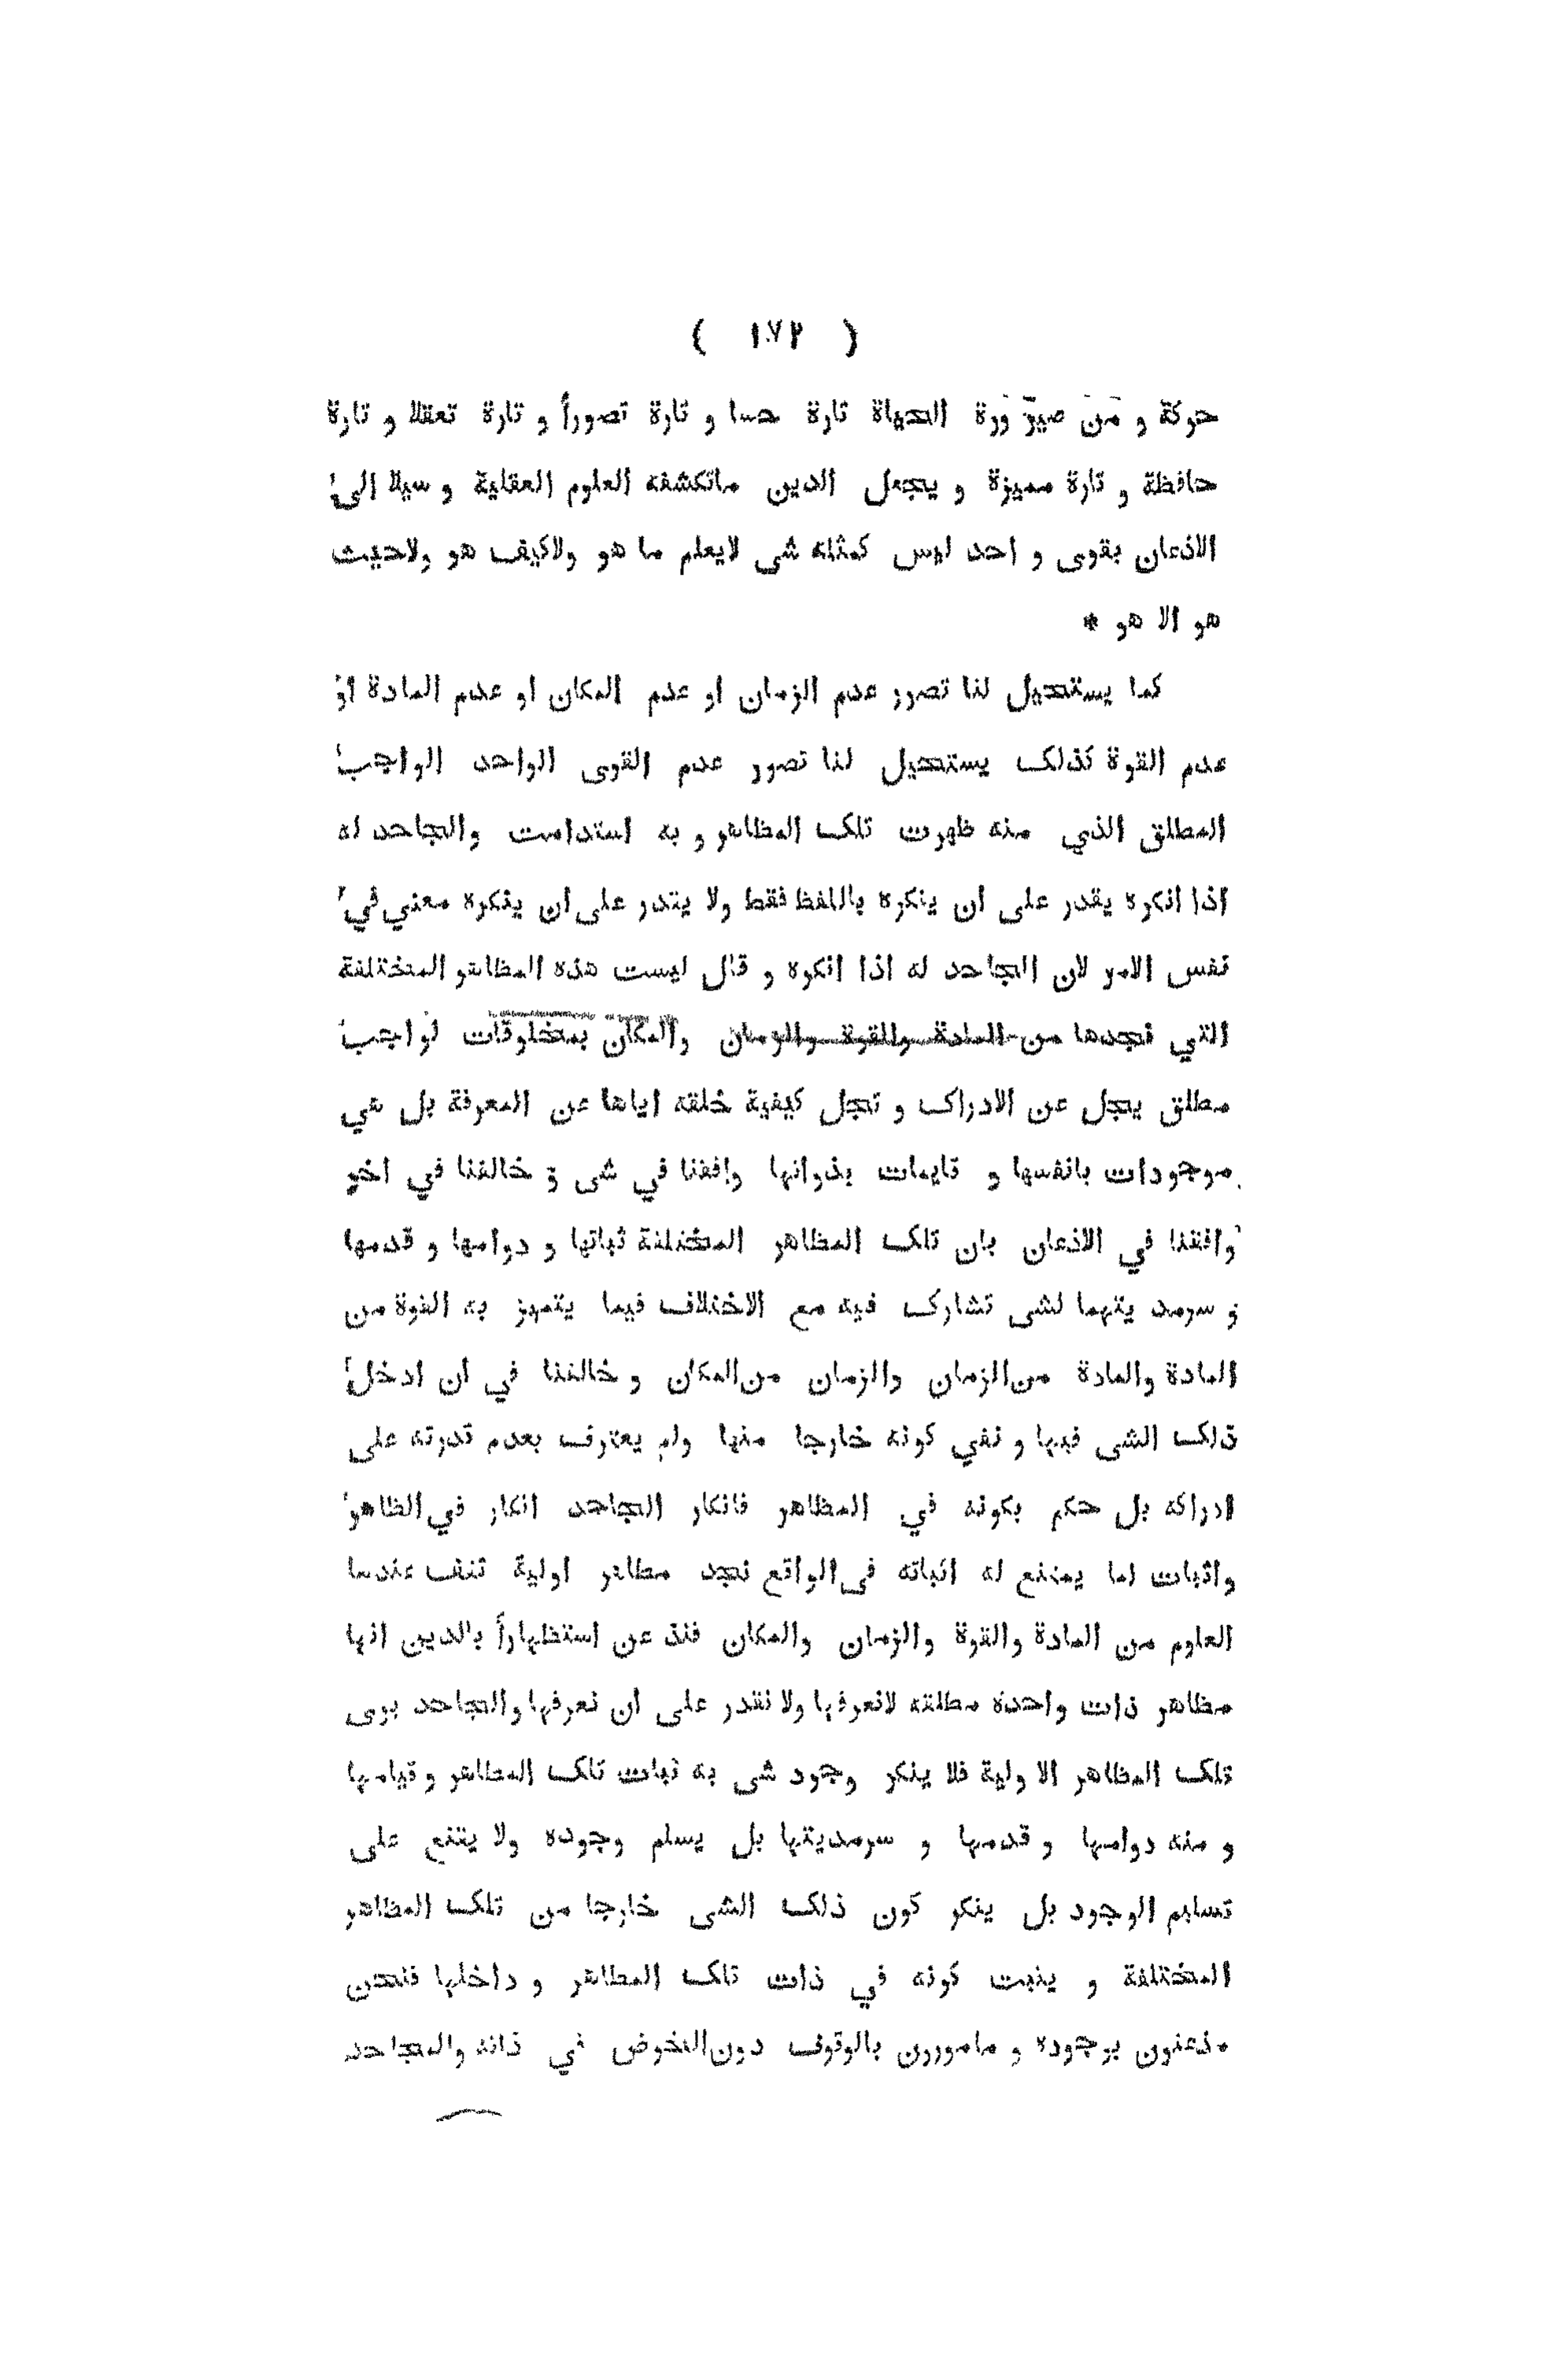 ( ١٧٢ )
حركة و من صيرورة الحياة تارة حسا و تارة تصوراً و تارة تعقلا و تارة
حافظة و تارة مميزة و يجعل الدين ماتكشفه العلوم العقلية و سيلا الى
الاذعان بقوى و احد ليس كمثله شى لايعلم ما هو ولاكيف هو ولاحيث
هو الا هو *
كما يستحيل لنا تصور عدم الزمان او عدم المكان او عدم المادة او
عدم القوة كذلك يستحيل لنا تصور عدم القوى الواحد الواجب
المطلق الذي منه ظهرت تلك المظاهر و به استدامت والجاحد له
اذا انكره يقدر على ان ينكره باللفظ فقط ولا يتدر على ان ينكره معني في
نفس الامر لان الجاحد له اذا انكره و قال ليست هذه المظاهر المختلفة
التي نجدها من المادة والقوة والزمان والمكان بمخلوقات لواجب
مطلق يجل عن الادراك و تجل كيفية خلقه اياها عن المعرفة بل هي
موجودات بانفسها و قايمات بذواتها وافقنا في شى و خالفنا في اخر
وافقنا في الاذعان بان تلك المظاهر المختلفة ثباتها و دوامها و قدمها
و سرمد يتهما لشى تشارك فيه مع الاختلاف فيما يتميز به القوة من
المادة والمادة من الزمان والزمان من المكان و خالفنا في ان ادخل
ذلك الشى فيها و نفي كونه خارجا منها ولم يعترف بعدم قدرته على
ادراكه بل حكم بكونه في المظاهر فانكار الجاحد انكار في الظاهر
واثبات لما يمتنع له اثباته فى الواقع نجد مظاهر اولية تقف عندها
العلوم من المادة والقوة والزمان والمكان فنذ عن استظهاراً بالدين انها
مظاهر ذات واحدة مطلقه لانعرفها ولا نقدر على ان نعرفها والجاحد يرى
تلك المظاهر الا ولية فلا ينكر وجود شى به ثبات تلك المظاهر و قيامها
و منه دوامها و قدمها و سرمديتها بل يسلم وجوده ولا يقنع على
تسليم الوجود بل ينكر كون ذلك الشى خارجا من تلك المظاهر
المختلفة و يثبت كونه في ذات تلك المظاهر و داخلها فنحن
مذعنون بوجوده و مامورون بالوقوف دون الخوض في ذاته والجاحد